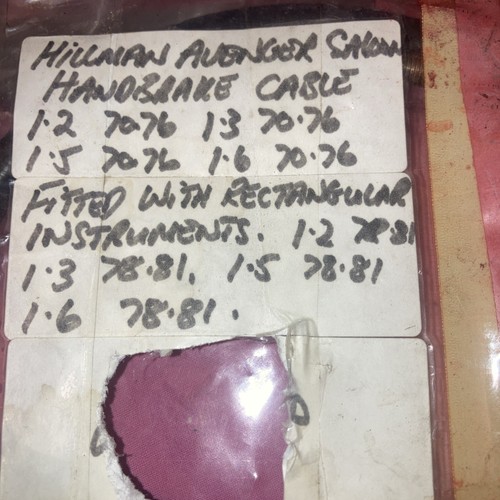 HILLMAN AVENGER SALOON
HANDBRAKE CABLE
1.2 70.76 1.3 70.76
1.5 70.76 1.6 70.76
FITTED WITH RECTANGULAR
INSTRUMENTS. 1.2 78.81
1.3 78.81. 1.5 78.81
1.6 78.81.